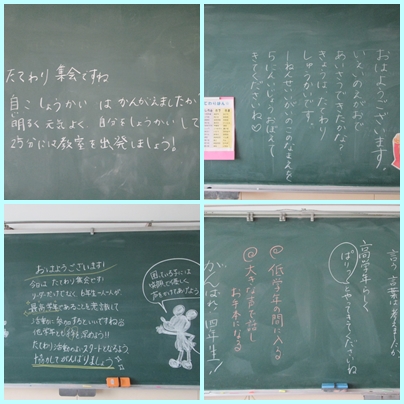 たてわり集会ですね
自こしょうかい は かんがえましたか?
明るく元気よく 自分をしょうかいして
25分には教室を出発しましょう!
おはようございます。
いえいのえがおで
あいさつできたかな。
きょうは、たてわり
しゅうかいです。
5にんいじょう おぼえて
きてくださいね♡
おはようございます!
今日は たてわり集会です。
最高学年であることを意識して
活動に参加するといいですね
たてわり活動のよいスタートとなるよう
協力してがんばりましょう。
困っている子には
声をかけてあげよう
言う言葉は考えましたか
高学年らしく
ばりっ!とやってきてくださいね
◎低学年の間に入る
◎大きな声で話し
お手本になる
がんばれ!四年生!